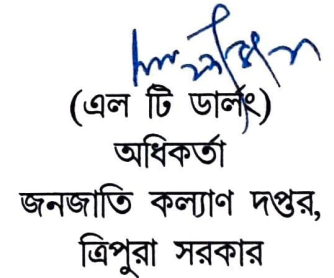 (এল টি ডার্লং)
অধিকর্তা
জনজাতি কল্যাণ দপ্তর,
ত্রিপুরা সরকার